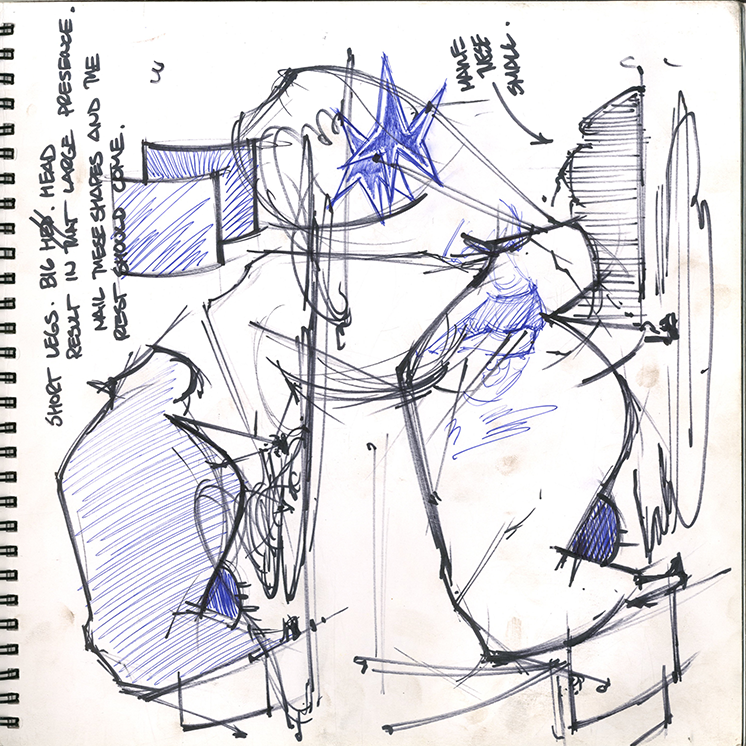 SHORT LEGS. BIG HEAD
RESULT IN THAT LARGE PRESENCE.
NAIL THESE SHAPES AND THE
REST SHOULD COME.
MAKE
THESE
SMALL.